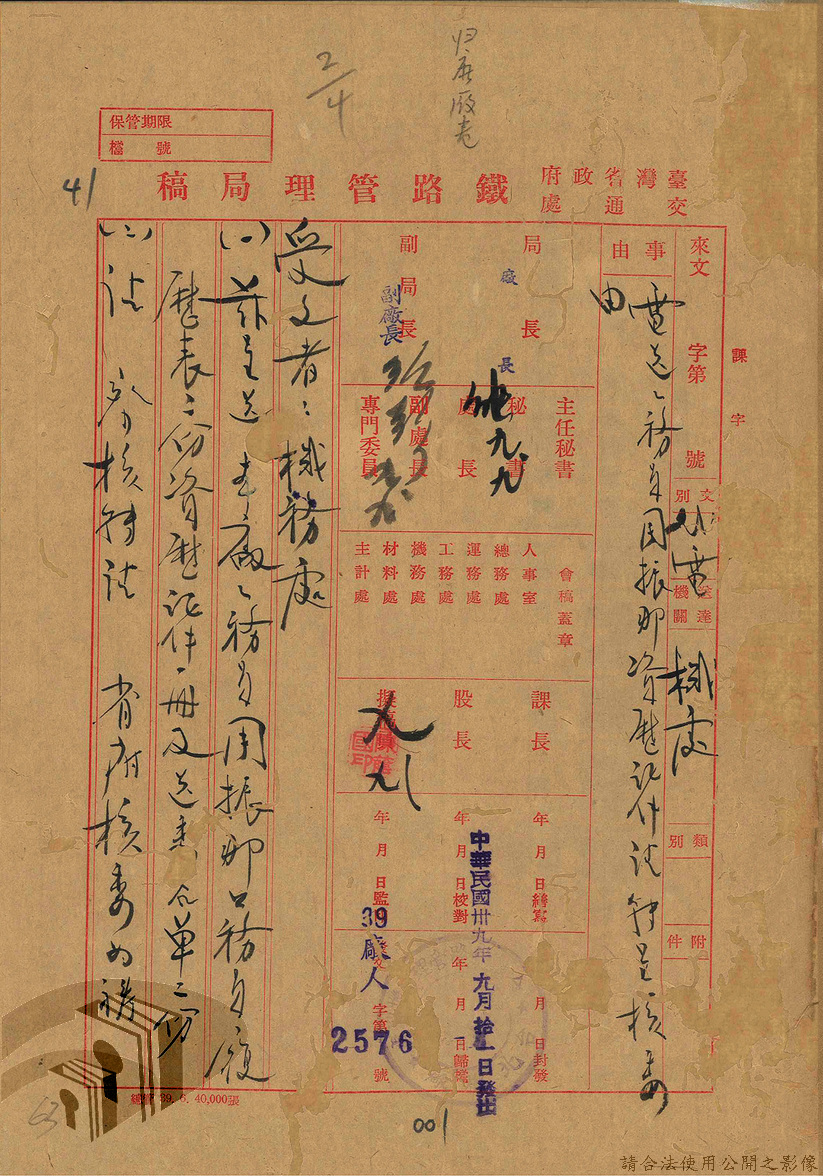 归原版卷
2/4
保管期限
檔號
41
臺灣省政府交通處
鐵路管理局稿
課字
來文 字第 號
文別
代電
送達機關
機處
類別
附件
事由
電送工務員周振邦資歷証件請轉呈核委由
局長
廠長
副局長
副廠長
主任秘書
秘書
處長
副處長
專門委員
九、九
會稿蓋章
人事室
總務處
運務處
工務處
機務處
材料處
主計處
課長
股長
擬稿員
九八
年月日繕寫
年月日校對
年月日監印
年月日封發
年月日歸檔
中華民國卅九年九月拾一日發出
39廠人字第2576號
受文者：機務處
(一)茲呈送本廠工務員周振邦公務員履
歷表二份資歷証件一冊及送審名單二份
(二)請 鑒核轉請 省府核委為禱
總管 39. 6. 40,000張
63
001
請合法使用公開之影像